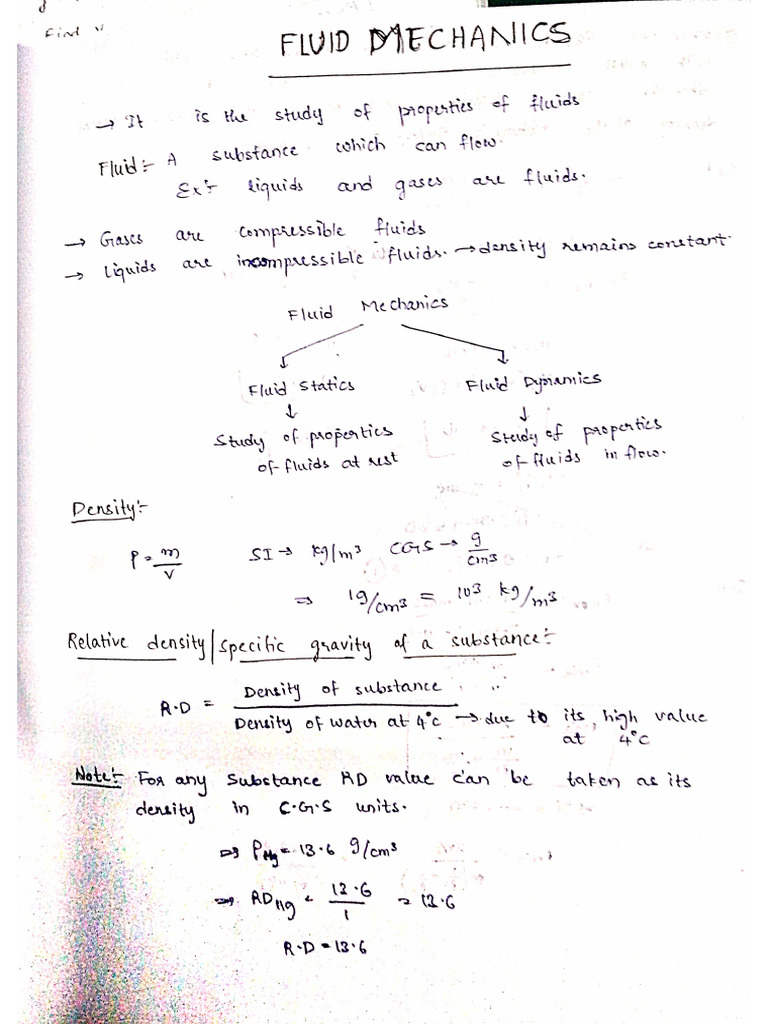 Find v
FLUID MECHANICS
→ It is the study of properties of fluids
Fluid:- A substance which can flow.
Ex:- liquids and gases are fluids.
→ Gases are compressible fluids
→ liquids are incompressible fluids. → density remains constant.
Fluid Mechanics
Fluid Statics Fluid Dynamics
↓ ↓
Study of properties Study of properties
of fluids at rest of fluids in flow.
Density:-
ρ = m/V SI → kg/m³ CGS → g/cm³
⇒ 1g/cm³ = 10³ kg/m³
Relative density/specific gravity of a substance:-
R.D = Density of substance
Density of water at 4°c → due to its high value
at 4°C
Note:- For any substance RD value can be taken as its
density in C.G.S units.
⇒ ρHg = 13.6 g/cm³
⇒ RDHg = 13.6/1 = 13.6
R.D = 13.6